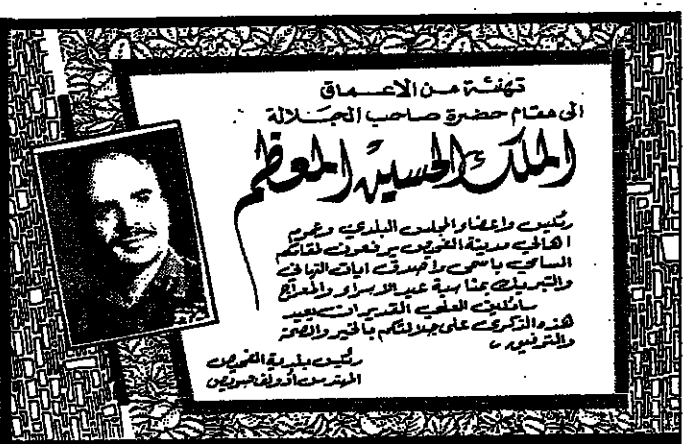 تهنئة من الاعماق
الى مقام حضرة صاحب الجلالة
الملك الحسين المعظم
رئيس واعضاء المجلس البلدي وعموم
اهالي مدينة الفحيص يرفعون لمقامكم
السامي باسمى واصدق ايات التهاني
والتبريك بمناسبة عيد الاسراء والمعراج
سائلين العلي القدير ان يعيد
هذه الذكرى على جلالتكم بالخير والصحة
والتوفيق
رئيس بلدية الفحيص
المهندس